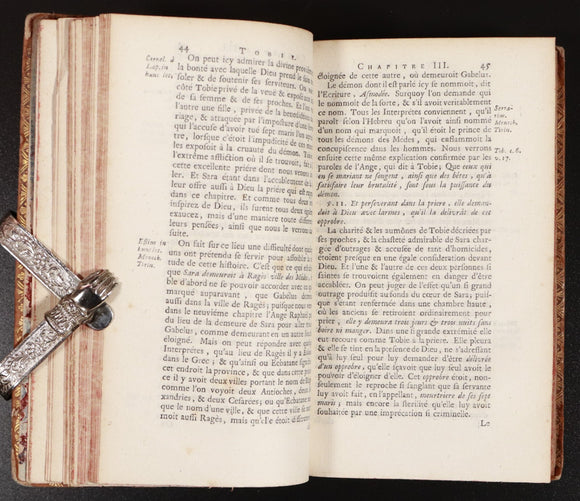 44 TOBIE.
Cornel. à Lap. in hunc loc.
On peut icy admirer la divine provid
la bonté avec laquelle Dieu prend le soin de
soler & de soutenir ses serviteurs. On
côté Tobie privé de la veuë & exposé aux
de sa femme & de ses proches. Et l'on
une autre fille, privée de la benediction du
riage, & attaquée par l'imposture d'une
qui l'accuse d'avoir tué sept maris l'un
tre, lorsque Dieu, par des
les exposoit à la cruauté du démon. Tous
l'extrême affliction où il se trouvoit, fait
cette excellente priere dont nous venons
ler. Et Sara étant dans l'accablement de
leur offre aussi à Dieu la priere qui est
dans ce chapitre. Et comme tous deux
inspirez de Dieu, ils furent tous deux
exaucez, mais d'une maniere toute differente
leurs pensées, ainsi que nous le verrons
suite.
Estius in hunc loc. Menoch. Tirin.
On fait sur ce lieu une difficulté dont
uns ont pretendu se servir pour affoiblir
tude de cette histoire. C'est que ce qui est
que Sara demeuroit à Ragés ville des Médes,
ble d'abord ne se pouvoir accorder avec ce
marqué auparavant, que Gabelus
aussi dans la ville de Ragés; puisque nous
dans le neuviéme chapitre l'Ange Raphaël
du lieu de la demeure de Sara pour aller
Gabelus, comme demeurant en un autre
éloigné. Mais on peut répondre avec
Interprétes, qu'au lieu de Ragés il y a
dans le Grec; & qu'ainsi ou Ecbatane
cet endroit la province, & que dans cette
ce il y avoit deux villes portant le nom de
comme l'on voyoit deux Antioches, deux
xandries, & deux Cesarées; ou qu'Ecbatane
que le nom d'une ville, & que cette ville
moit aussi Ragés, mais qu'elle étoit differente
CHAPITRE III. 45
éloignée de cette autre, où demeuroit Gabelus.
Le démon dont il est parlé icy se nommoit, dit
l'Ecriture, Asmodée. Surquoy l'on demande qui
le nommoit de la sorte, & s'il avoit veritablement
ce nom. Tous les Interprétes conviennent, qu'il
paroît selon l'Hebreu qu'on l'avoit ainsi nommé
d'un nom qui marquoit, qu'il étoit le prince de
tous les démons des Modes, qui enflammoit la
concupiscence dans les hommes. Nous verrons
ensuite cette même explication confirmée par les
paroles de l'Ange, qui dit à Tobie; Que ceux qui
en se mariant ne songent, ainsi que des bêtes, qu'à
satisfaire leur brutalité, sont sous la puissance du
démon.
Serrarius. Menoch. Tirin.
Tob. c. 6. v. 17.
v. 11. Et perseverant dans la priere, elle demandoit
à Dieu avec larmes, qu'il la délivrât de cet
opprobre.
La charité & les aumônes de Tobie décriées par
ses proches, & la chasteté admirable de Sara chargée
d'outrages & accusée de tant d'homicides,
étoient presque en une égale consideration devant
Dieu. Et l'une & l'autre de ces deux personnes si
saintes se trouvoient également en danger d'être
accablées. On peut juger de l'effet qu'un si grand
outrage produisit au fond du cœur de Sara; puisque
s'étant renfermée dans une chambre haute,
où les anciens se retiroient ordinairement pour
prier, elle y demeura trois jours & trois nuits sans
boire ni manger. Dans son extrême accablement elle
eut recours comme Tobie à la priere. Elle pleura
& elle se tint en la présence de Dieu, ne s'adressant
qu'à luy seul pour luy demander d'être délivrée
d'un opprobre, qu'elle sçavoit que luy seul avoit le
pouvoir d'éloigner d'elle. Cet opprobre étoit, non-
seulement le reproche si sanglant que sa servante
luy avoit fait, en l'appellant, meurtriere de ses sept
maris; mais encore la sterilité qu'elle luy avoit
souhaitée par une imprécation si criminelle.
Le